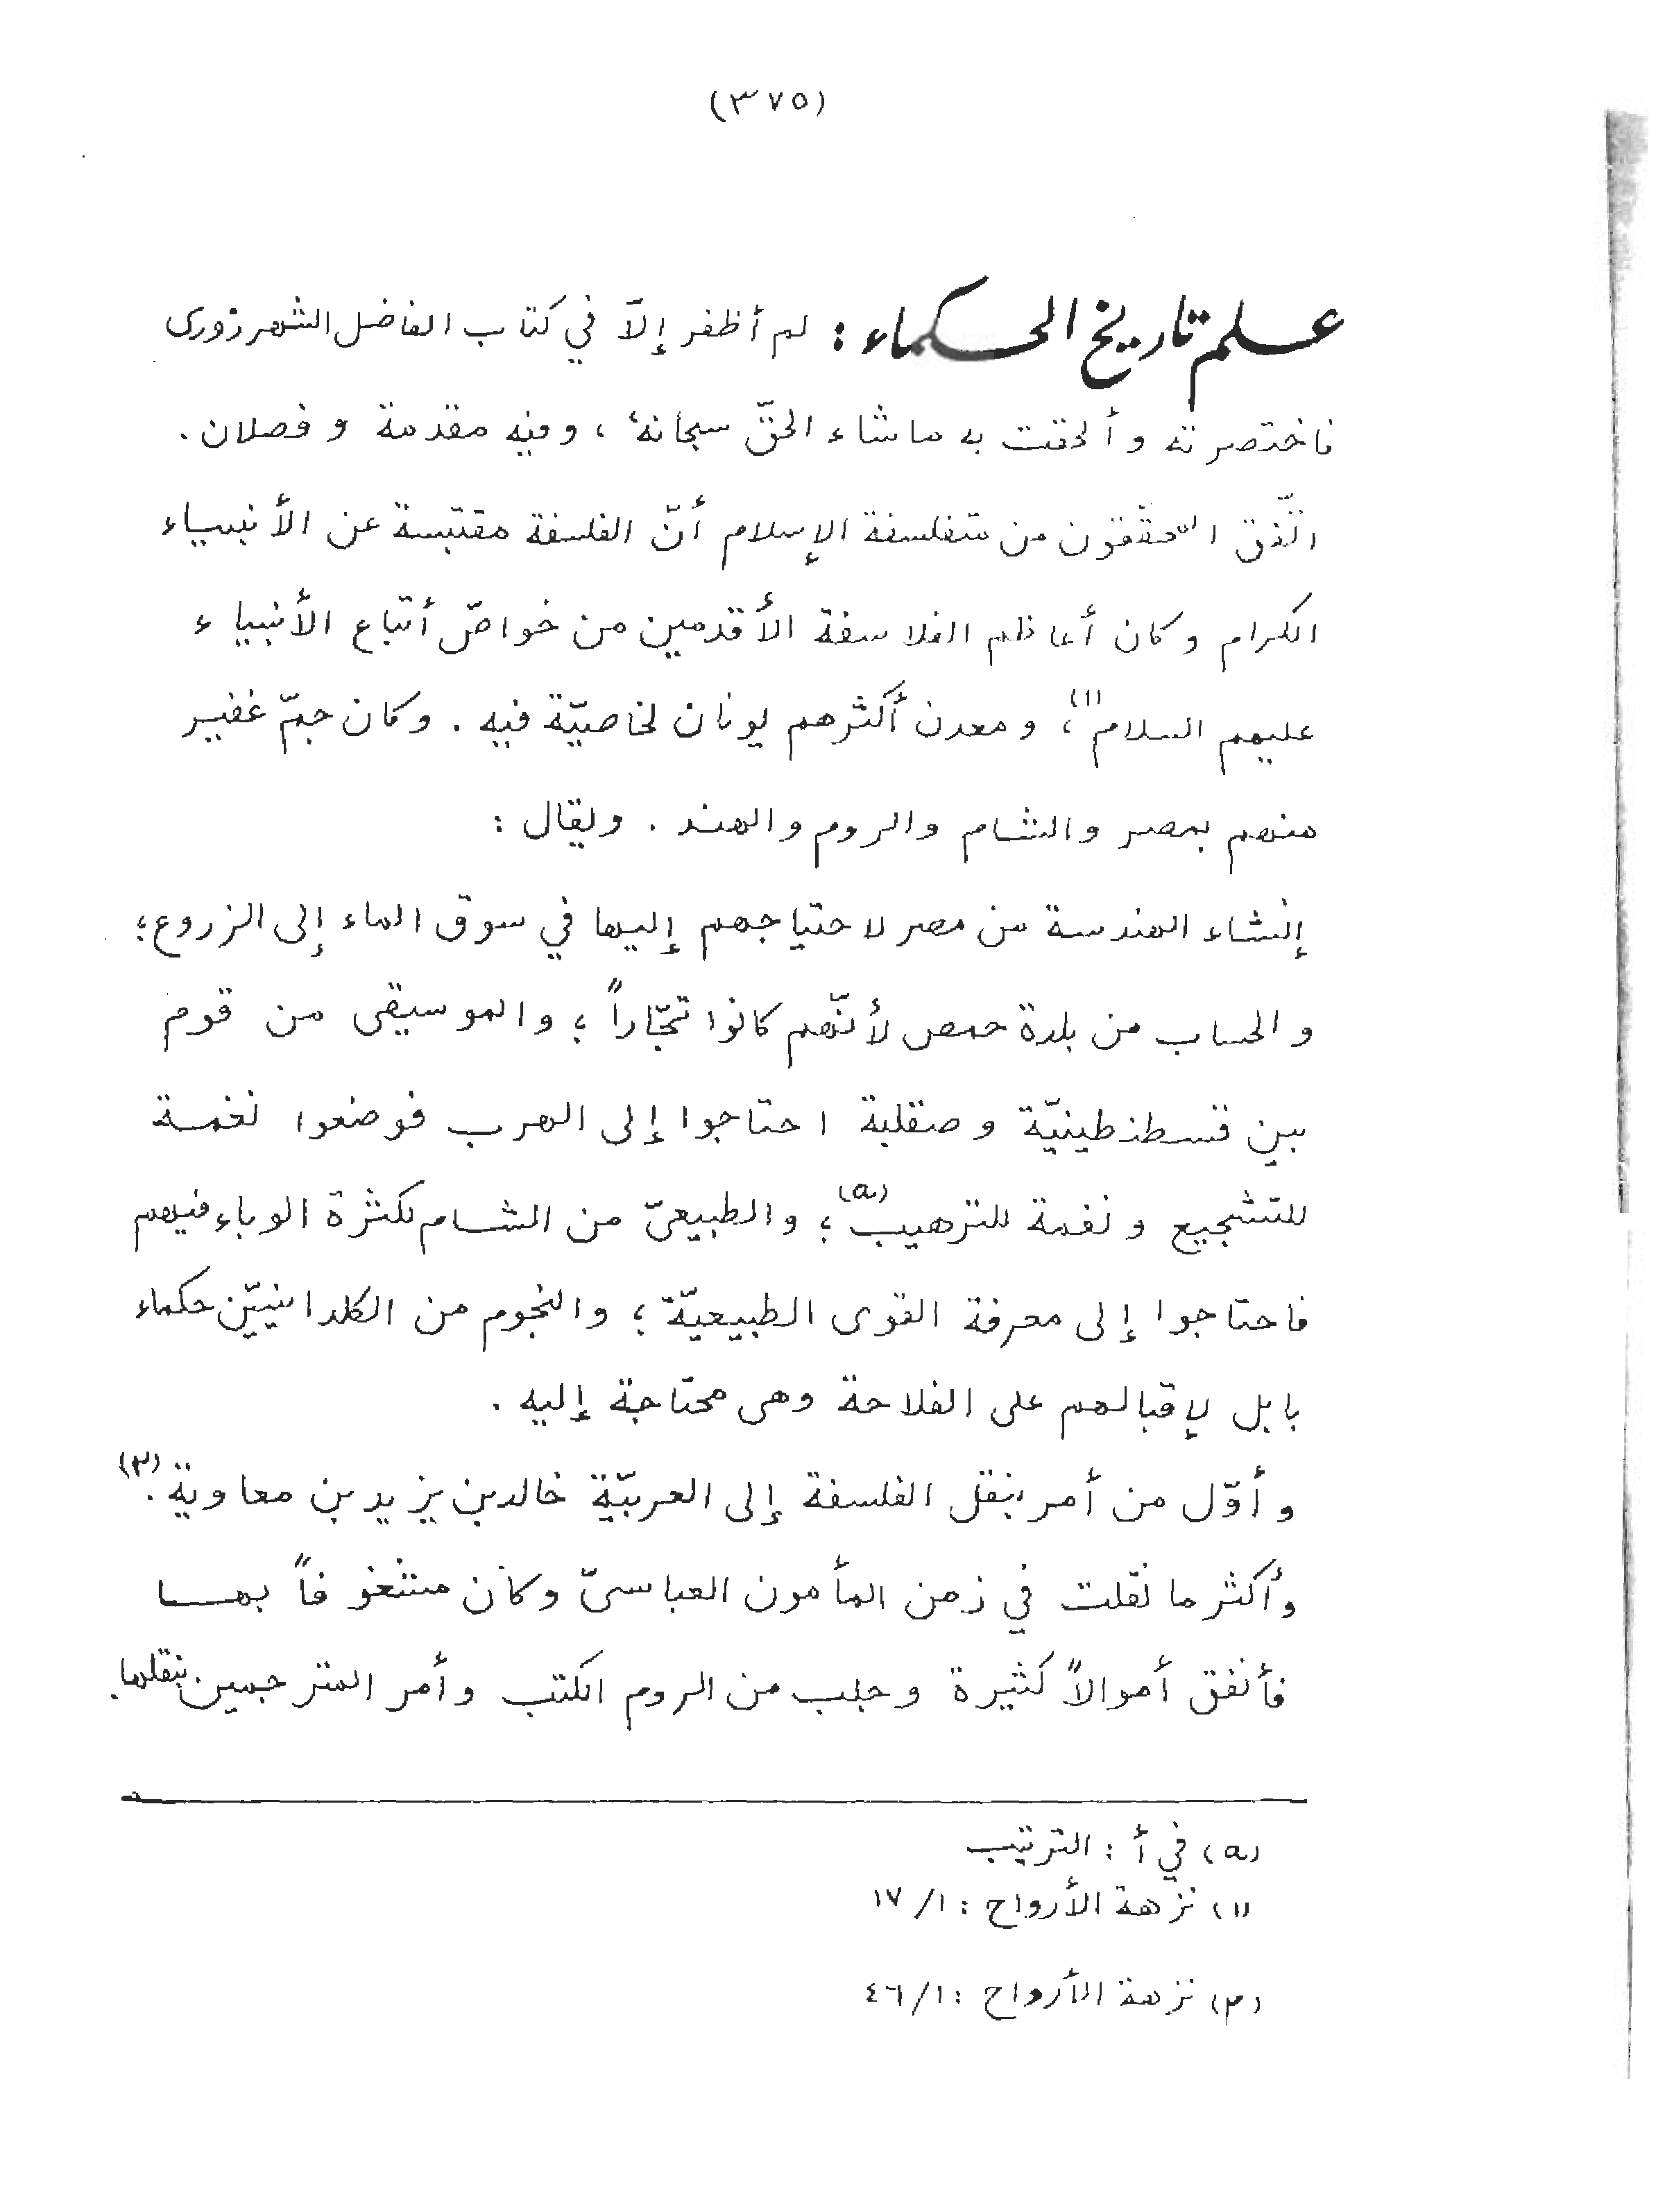 (٣٧٥)
علم تاريخ الحكماء : لم أظفر إلاّ في كتاب الفاضل الشهرزورى
فاختصرته وألحقت به ماشاء الحقّ سبحانهُ ، وفيه مقدمة و فصلان .
اتّفق المحقّقون من متفلسفة الإسلام أنّ الفلسفة مقتبسة عن الأنبياء
الكرام وكان أعاظم الفلاسفة الأقدمين من خواصّ أتباع الأنبياء
عليهم السلام(١)، ومعدن أكثرهم يونان لخاصيّة فيه . وكان جمّ غفير
منهم بمصر والشام والروم والهند . ويقال :
إنشاء الهندسة من مصر لاحتياجهم إليها في سوق الماء إلى الزروع؛
والحساب من بلدة حمص لأنّهم كانوا تجّاراً ؛ والموسيقى من قوم
بين قسطنطينيّة وصقلبة احتاجوا إلى الهرب فوضعوا نغمة
للتشجيع ونغمة للترهيب(ه) ؛ والطبيعىّ من الشام لكثرة الوباء فيهم
فاحتاجوا إلى معرفة القوى الطبيعيّة ؛ والنجوم من الكلدانيّين حكماء
بابل لإقبالهم على الفلاحة وهى محتاجة إليه .
وأوّل من أمر بنقل الفلسفة إلى العربيّة خالدبن يزيد بن معاوية(٢).
وأكثر ما نقلت في زمن المأمون العباسىّ وكان مشغوفاً بهــا
فأنفق أموالاً كثيرة وجلب من الروم الكتب وأمر المترجمين بنقلها.
(ه) في أ : الترتيب
(١) نزهة الأرواح : ١/ ١٧
(٢) نزهة الأرواح : ١/ ٤٦